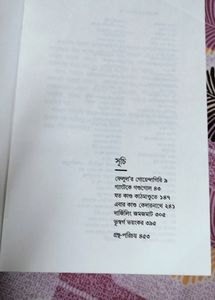 সূচি
ফেলুদা'র গোয়েন্দাগিরি ৯
গ্যাংটকে গণ্ডগোল ৪৩
যত কাণ্ড কাঠমাণ্ডুতে ১৪৭
এবার কাণ্ড কেদারনাথে ২৪১
দার্জিলিং জমজমাট ৩০৫
ভূস্বর্গ ভয়ংকর ৩৯৫
গ্রন্থ-পরিচয় ৪৫৩